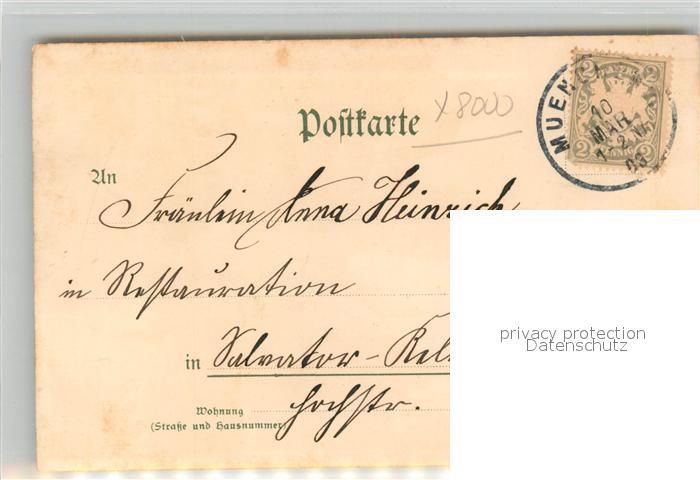 Postkarte
x 8000
MUEN
10
MAR
1-2 N
03
2 2
2 2
An
Fräulein Anna Heinrich
in Restauration
in Salvator-Kel
Hochstr.
Wohnung
(Straße und Hausnummer)
privacy protection
Datenschutz